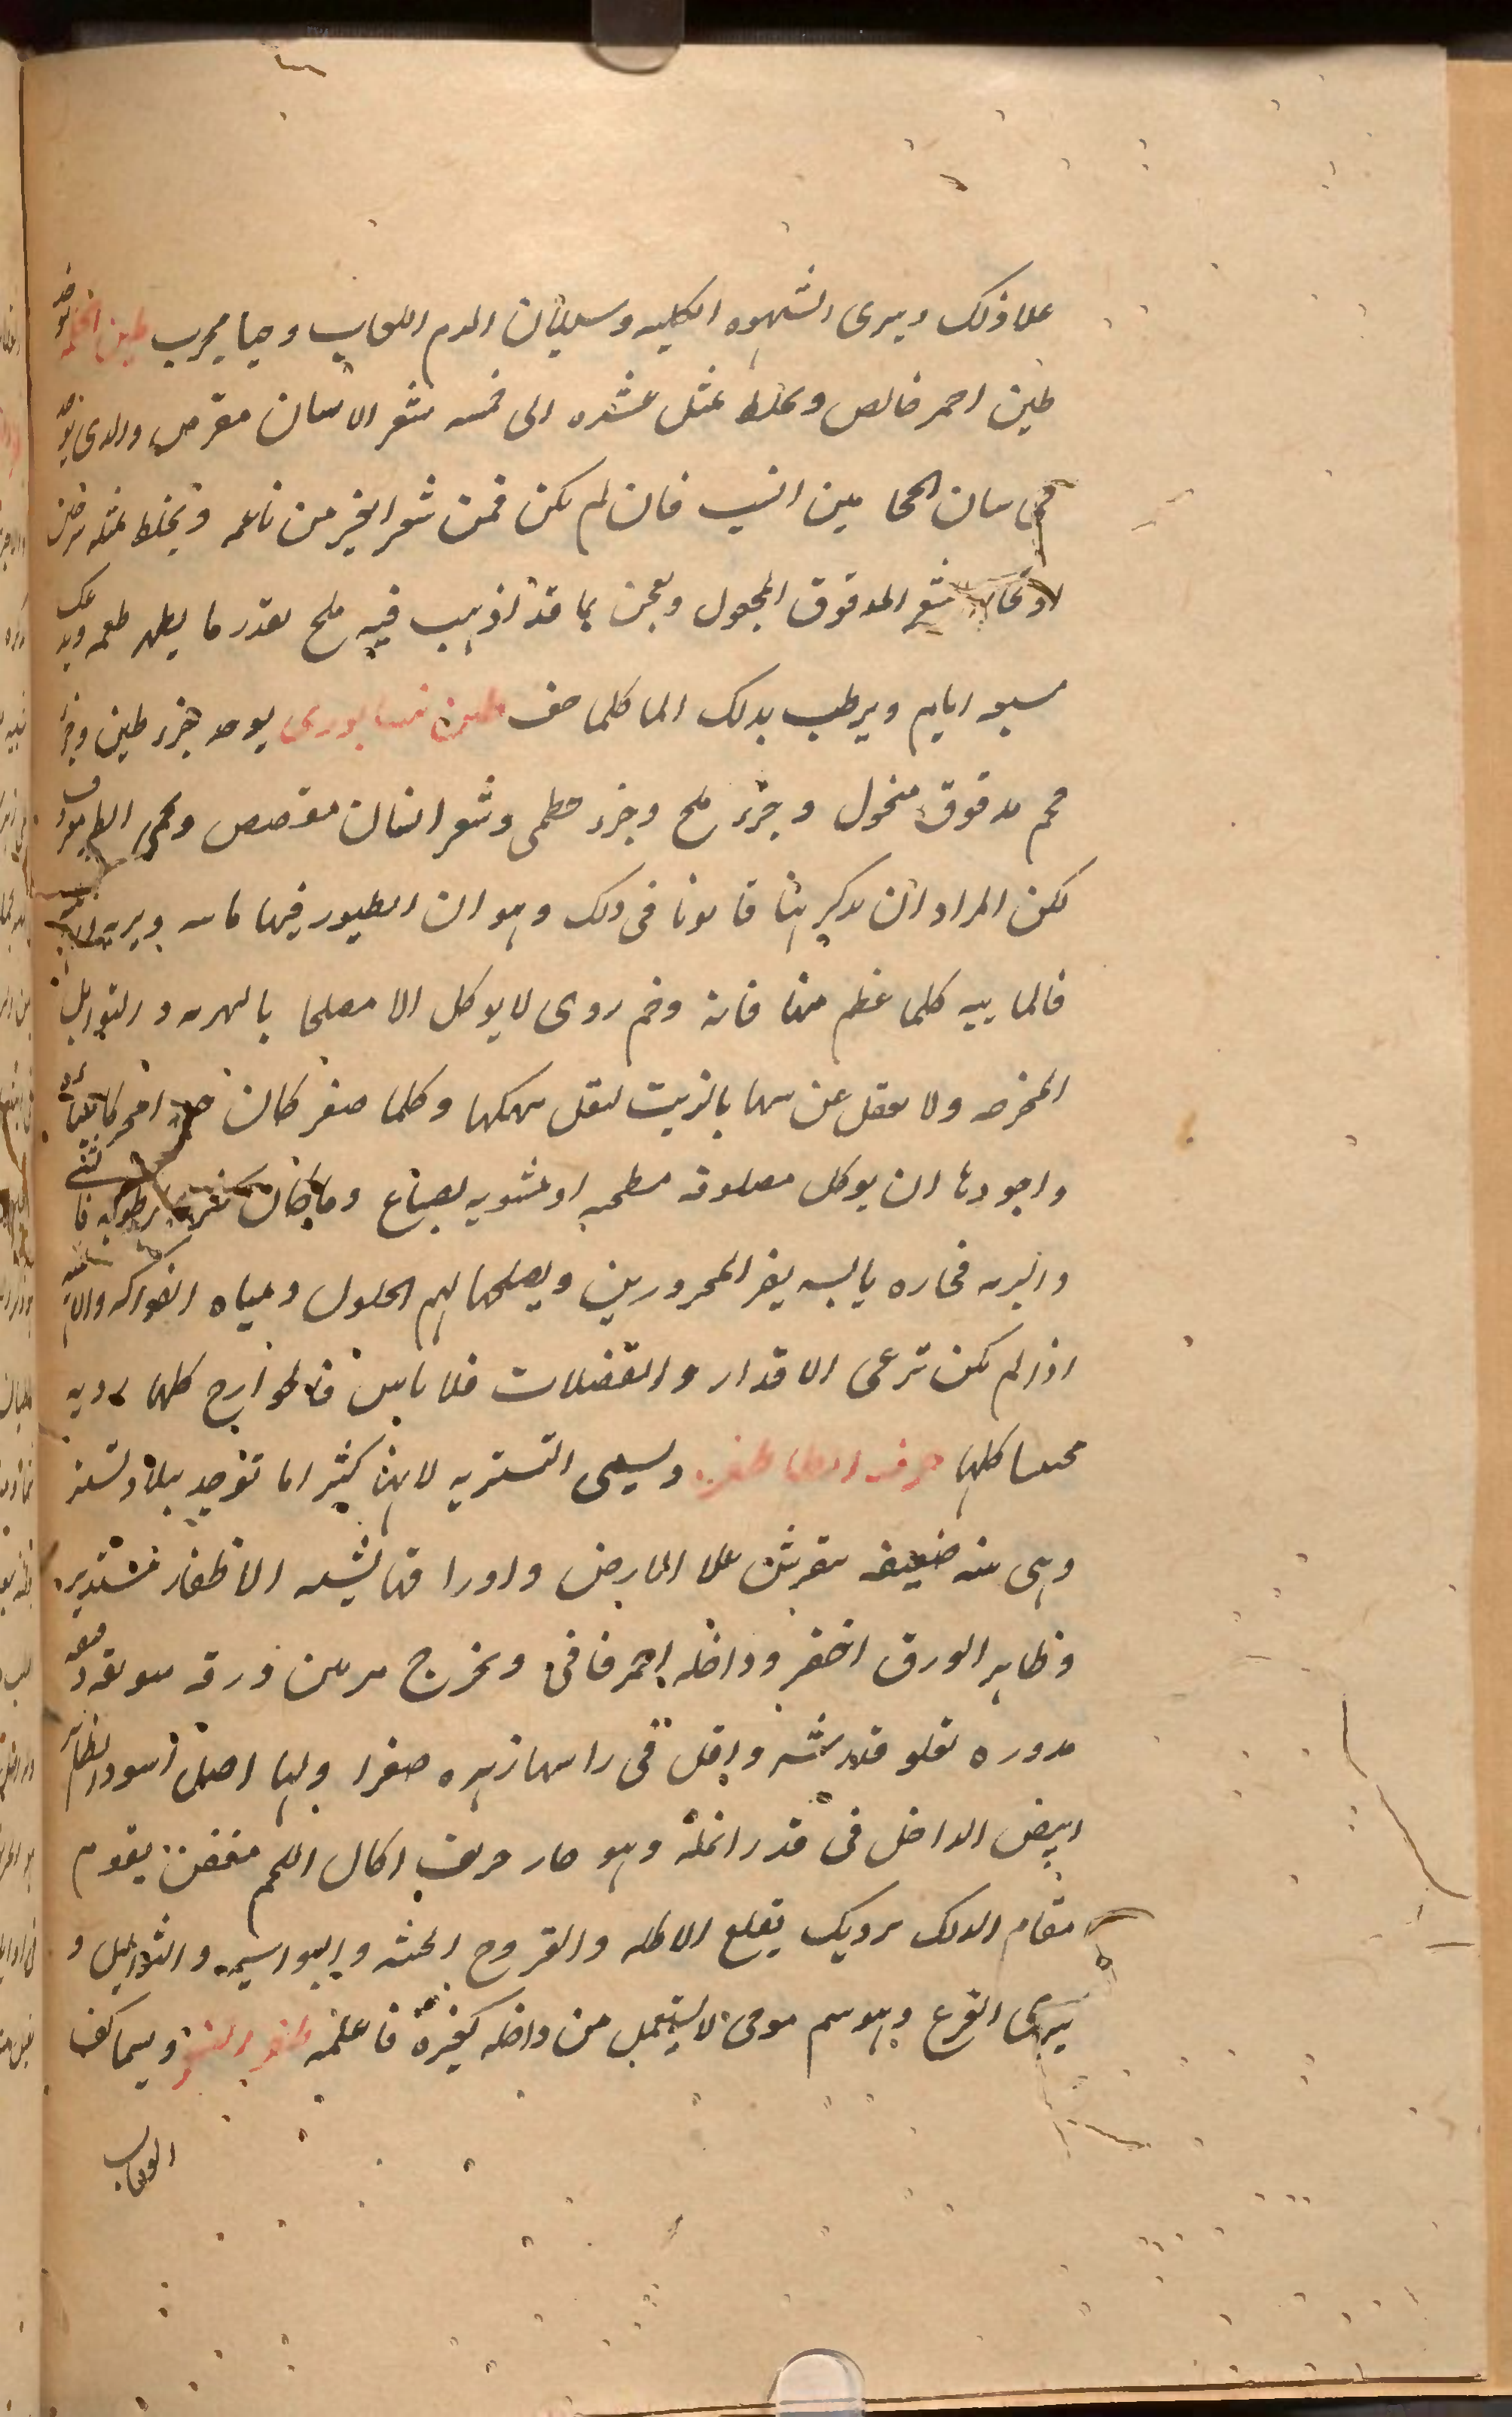 علا ذلك ويبرى الشهوه الكلبيه وسيلان الدم اللعاب وحيا مجرب طين الحكمه يوخذ
طين احمر خالص ويخلط بمثل عشره الى خمسه شعر الانسان مقرص والدى
فى سان الحجا مين انسب فان لم يكن فمن شعر الخير من ناعمه ويخلط بمثله
شعر المدقوق المجول ويعجن بما قد اذيب فيه ملح بقدر ما يظهر طعمه
سبعه ايام ويرطب بذلك الما كلما جف طين نيسابورى يوخذ جزء طين وجزء
فحم مدقوق منخول وجزء ملح وجزء خطمى وشعر انسان مقصص
لكن المراد ان نذكر هنا قانونا فى ذلك وهو ان الطيور فيها مايه وبريه
فالماييه كلما عظم منها فانه وخم ردى لا يوكل الا مصلحا بالهريه والتوابل
المخرجه ولا يغفل عن سها بالزيت لتقل سهكها وكلما صغر كان
واجودها ان يوكل مصلوقه مطجنه او مشويه بصباغ وما كان
والبريه فحاره يابسه يضر المحرورين ويصلحها لهم الخلول ومياه الفواكه
اذا لم يكن ترعى الاقدار والفضلات فلا باس فالجوارح كلها رديه
كلها حرف الظا ظفره ويسمى التستريه لانها كثيرا ما توجد ببلاد تستر
وهى نبته ضعيفه تفرش علا الارض واوراقها يشبه الاظفار مستديره
وظاهر الورق اخضر وداخله احمر قانى ويخرج من بين ورقه سويقه
مدوره تعلو قدر شبر واقل فى راسها زهره صفرا ولها اصل اسود الظاهر
ابيض الداخل فى قدر انمله وهو حار حريف اكال اللحم معفن يقوم
مقام الدلك برديك يقلع الاكله والقروح الخبيثه والبواسير والثواليل و
يبرى القرع وهو سم موحى لا يستعمل من داخله كغيره فاعلمه ظفر النسر ويسما كف
العقاب